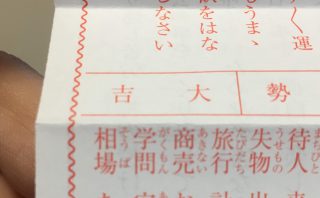 く運
うまゝ
をはな
しなさい
勢
大吉
待人
まちびと
失物
うせもの
旅行
たびだち
商売
あきない
学問
がくもん
相場
そうば